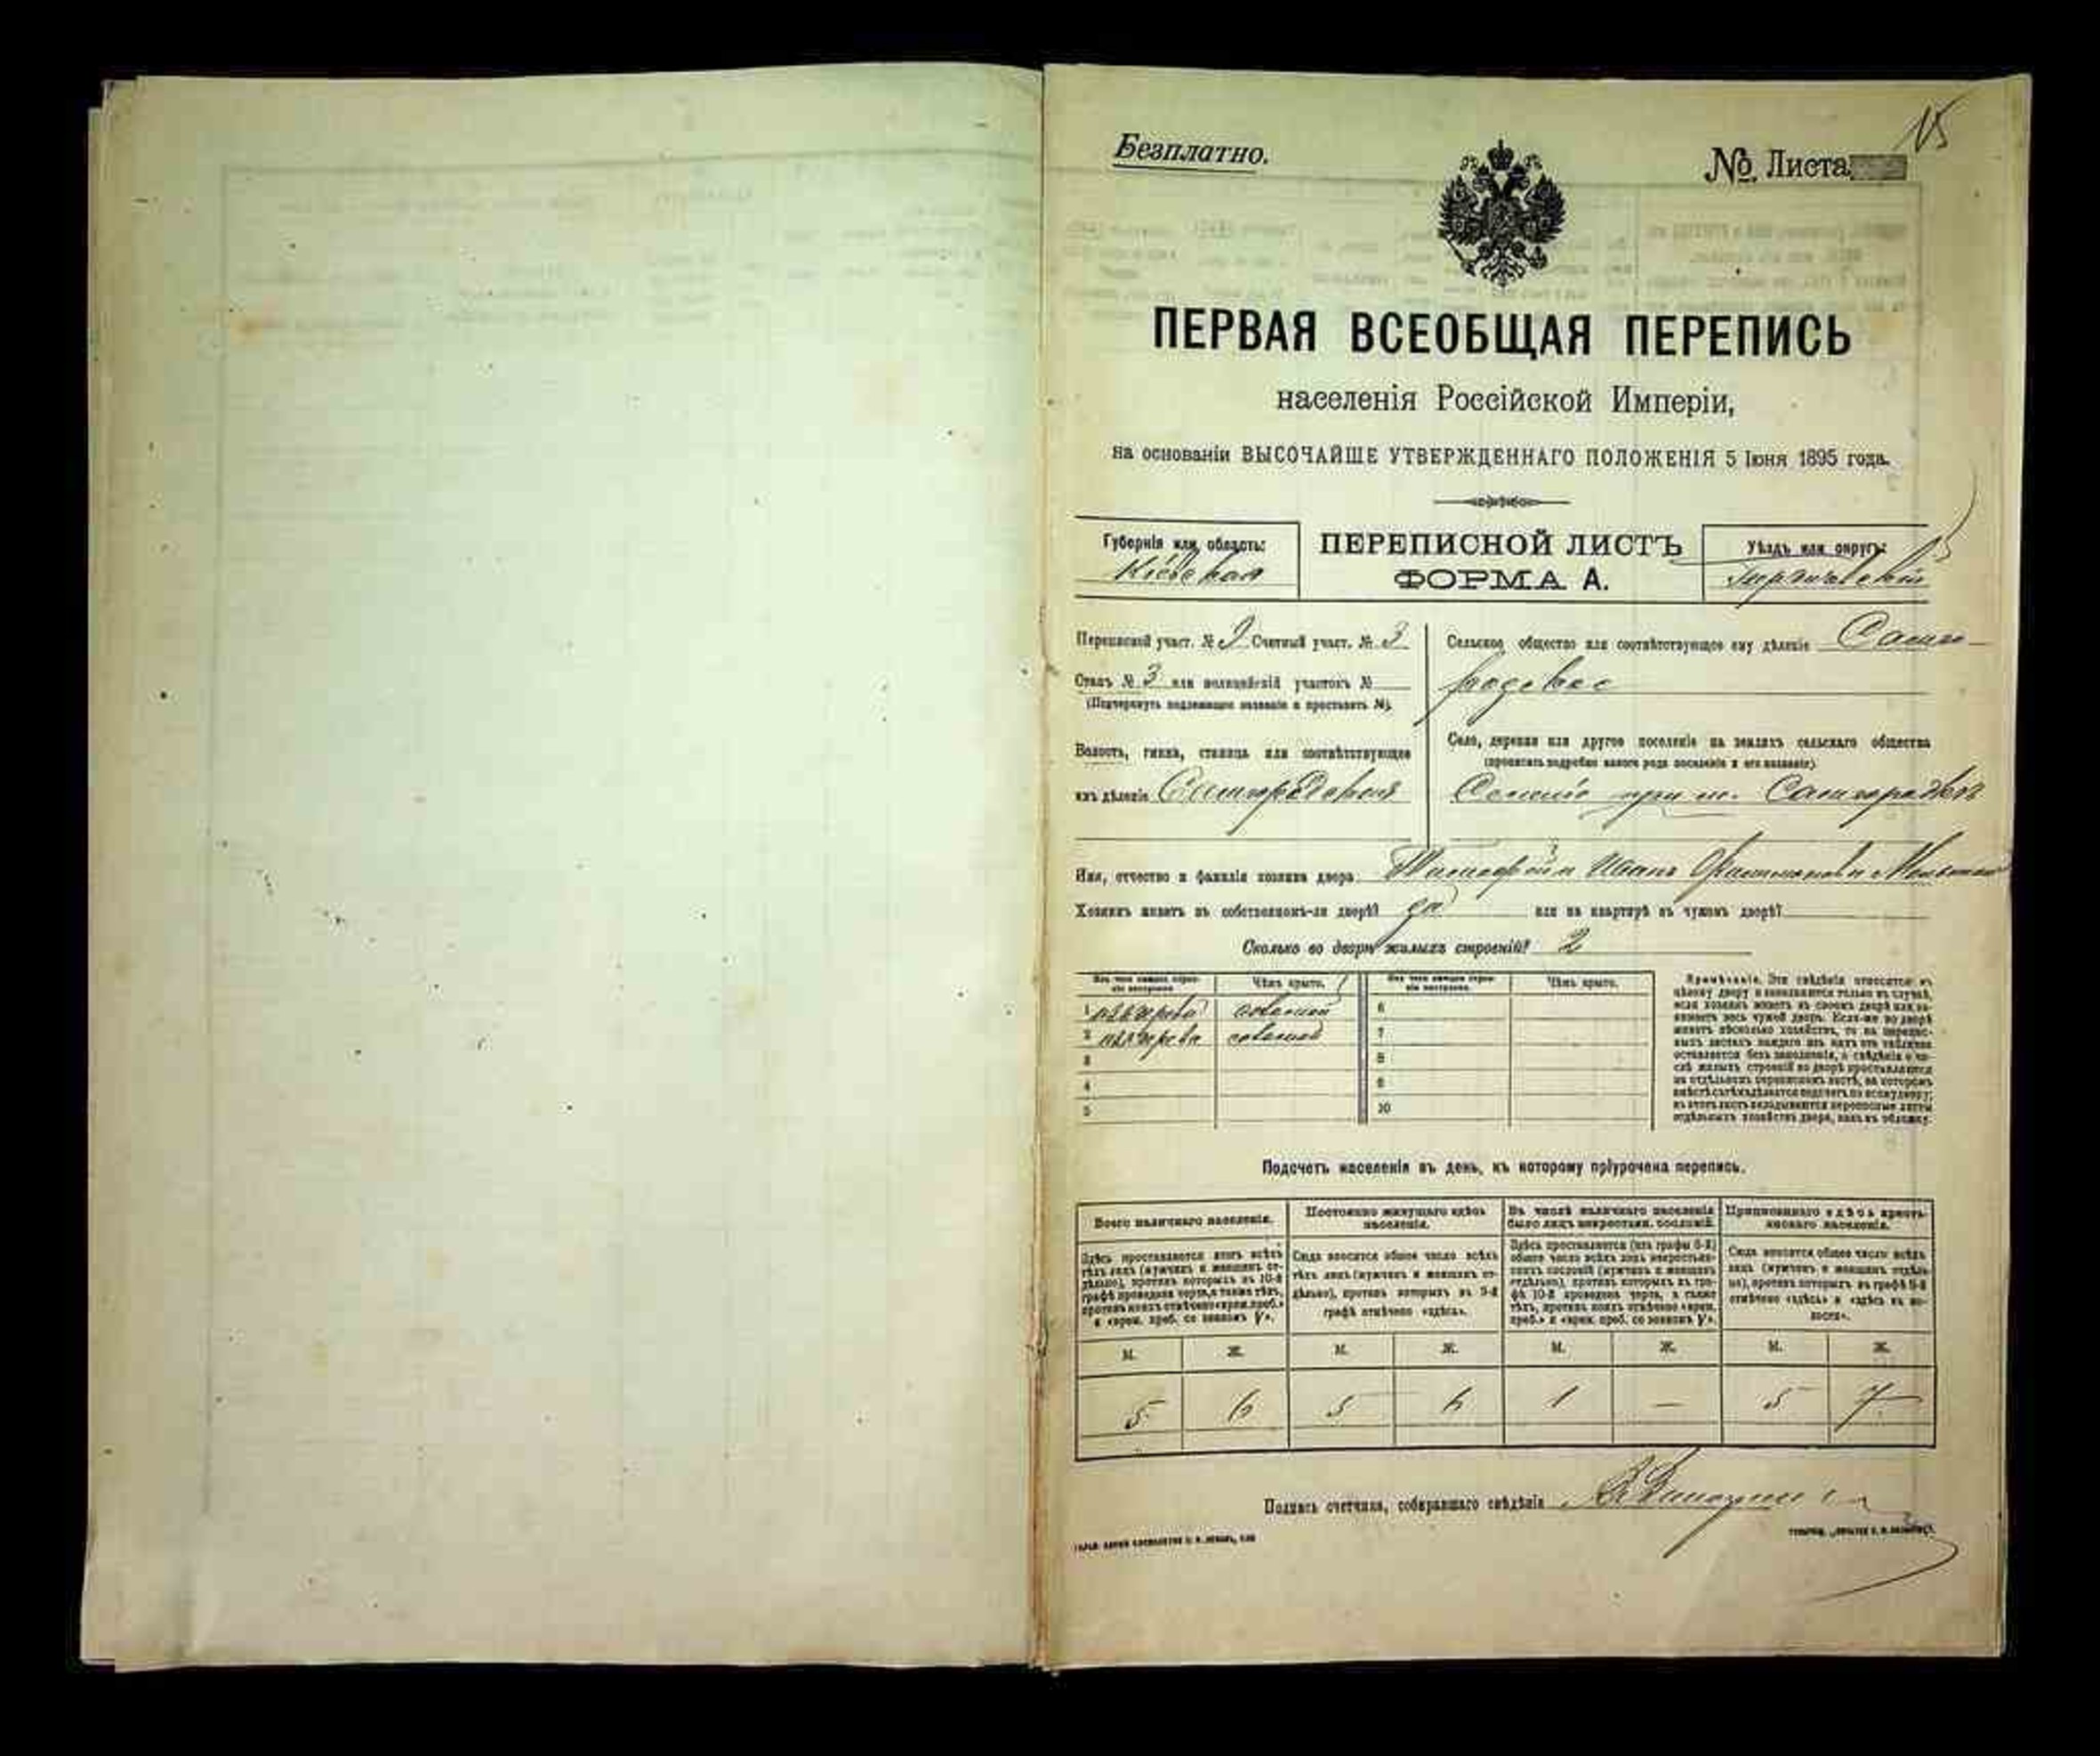 Безплатно.
№ Листа
15
ПЕРВАЯ ВСЕОБЩАЯ ПЕРЕПИСЬ
населенія Россійской Имперіи,
на основаніи ВЫСОЧАЙШЕ УТВЕРЖДЕННАГО ПОЛОЖЕНІЯ 5 Іюня 1895 года.
Губернія или область:
Кіевская
ПЕРЕПИСНОЙ ЛИСТЪ
ФОРМА А.
Уѣздъ или округъ:
15
Переписной участ. № 9 Счетный участ. № 3
Станъ № 3 или полицейскій участокъ №
(Подчеркнуть надлежащее названіе и проставить №).
Волость, гмина, станица или соотвѣтствующее
имъ дѣленіе
Сельское общество или соотвѣтствующее ему дѣленіе
Село, деревня или другое поселеніе на земляхъ сельскаго общества
(прописать подробно какого рода поселеніе и его названіе)
Имя, отчество и фамилія хозяина двора:
Хозяинъ живетъ въ собственномъ-ли дворѣ? да или на квартирѣ въ чужомъ дворѣ?
Сколько во дворѣ жилыхъ строеній? 2
Изъ чего каждое строеніе построено
Чѣмъ крыто.
Изъ чего каждое строеніе построено.
Чѣмъ крыто.
1 изъ дерева соломой 6
2 изъ дерева соломой 7
3 8
4 9
5 10
Примѣчаніе. Эти свѣдѣнія относятся къ
цѣлому двору и заполняются только въ случаѣ,
если хозяинъ живетъ въ своемъ дворѣ или за-
нимаетъ весь чужой дворъ. Если-же во дворѣ
живетъ нѣсколько хозяйствъ, то на перепис-
ныхъ листахъ каждаго изъ нихъ эта табличка
оставляется безъ заполненія, а свѣдѣнія о чи-
слѣ жилыхъ строеній во дворѣ проставляются
на отдѣльномъ переписномъ листѣ, на которомъ
вмѣстѣ съ тѣмъ дѣлается подсчетъ по всему двору;
въ этотъ листъ вкладываются переписные листы
отдѣльныхъ хозяйствъ двора, какъ въ обложку.
Подсчетъ населенія въ день, къ которому пріурочена перепись.
Всего наличнаго населенія.
Постоянно живущаго здѣсь
населенія.
Въ числѣ наличнаго населенія
было лицъ некрестьян. сословій.
Приписаннаго здѣсь кресть-
янскаго населенія.
Здѣсь проставляется итогъ всѣхъ
тѣхъ лицъ (мужчинъ и женщинъ от-
дѣльно), противъ которыхъ въ 10-й
графѣ проведена черта, а также тѣхъ,
противъ коихъ отмѣчено «врем. преб.»
и «врем. преб. со знакомъ V».
Сюда вносится общее число всѣхъ
тѣхъ лицъ (мужчинъ и женщинъ от-
дѣльно), противъ которыхъ въ 9-й
графѣ отмѣчено «здѣсь».
Здѣсь проставляется (изъ графы 6-й)
общее число всѣхъ лицъ некрестьян-
скихъ сословій (мужчинъ и женщинъ
отдѣльно), противъ которыхъ въ гра-
фѣ 10-й проведена черта, а также
тѣхъ, противъ коихъ отмѣчено «врем.
преб.» и «врем. преб. со знакомъ V».
Сюда вносится общее число всѣхъ
лицъ (мужчинъ и женщинъ отдѣль-
но), противъ которыхъ въ графѣ 8-й
отмѣчено «здѣсь» и «здѣсь въ во-
лости».
М. Ж. М. Ж. М. Ж. М. Ж.
5 6 5 6 1 — 5 7
Подпись счетчика, собиравшаго свѣдѣнія